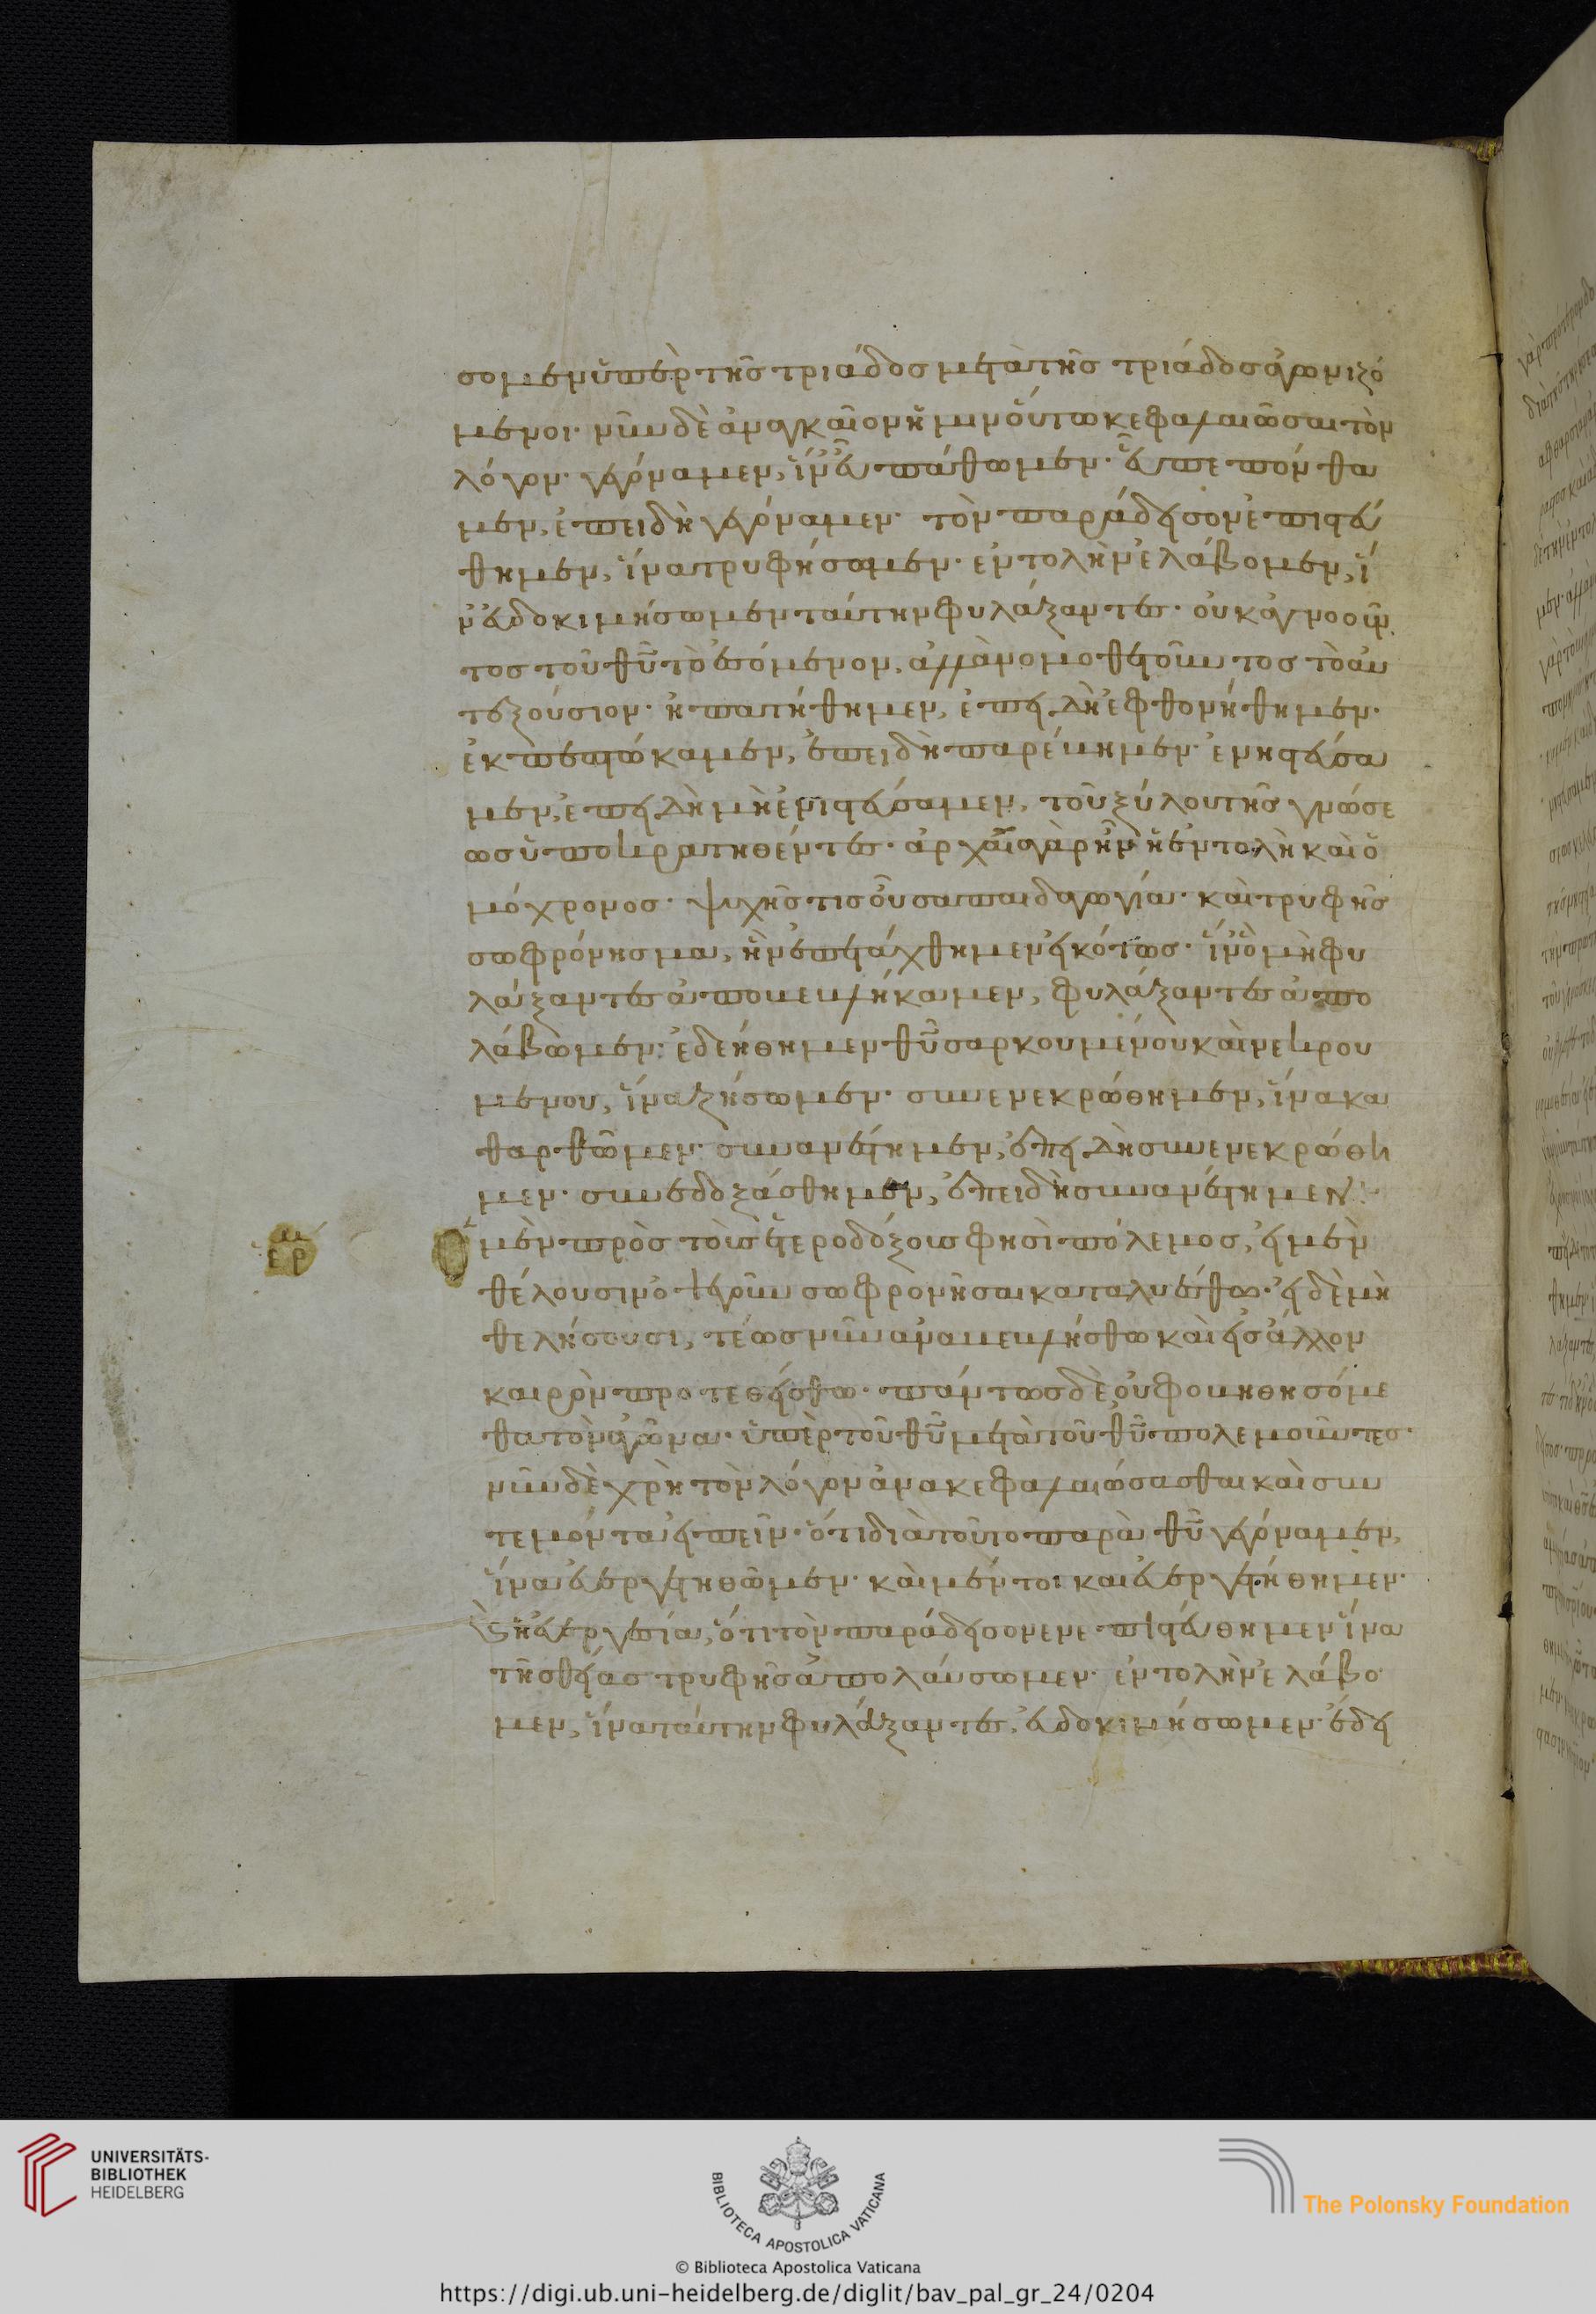 σομεν ὑπὲρ τῆς τριάδος μετὰ τῆς τριάδος ἀγωνιζό
μενοι· νῦν δὲ ἀναγκαῖον ἡμῖν οὕτω κεφαλαιῶσαι τὸν
λόγον· γεγόναμεν, ἵν' εὖ πάθωμεν· εὖ πεπόνθα
μεν, ἐπειδὴ γεγόναμεν· τὸν παράδεισον ἐπιστεύ
θημεν, ἵνα τρυφήσωμεν· ἐντολὴν ἐλάβομεν, ἵ
ν' εὐδοκιμήσωμεν ταύτην φυλάξαντες· οὐκ ἀγνοοῦν
τος τοῦ θῦ τὸ ἐσόμενον, ἀλλὰ νομοθετοῦντος τὸ αὐ
τεξούσιον· ἠπατήθημεν, ἐπειδὴ ἐφθονήθημεν·
ἐκπεπτώκαμεν, ἐπειδὴ παρέβημεν· ἐνηστεύσα
μεν, ἐπειδὴ μὴ ἐνηστεύσαμεν, τοῦ ξύλου τῆς γνώσε
ως ὑποκρατηθέντες· ἀρχαία γὰρ ἦν ἡ ἐντολὴ καὶ ὁ
μόχρονος· ψυχῆς τις οὖσα παιδαγωγία· καὶ τρυφῆς
σωφρόνησμα, ἣν ἐπετάχθημεν εἰκότως· ἵν' ὃ μὴ φυ
λάξαντες ἀποβεβλήκαμεν, φυλάξαντες ἀπο
λάβωμεν· ἐδεήθημεν θῦ σαρκουμένου καὶ νεκρου
μένου, ἵνα ζήσωμεν· συνενεκρώθημεν, ἵνα κα
θαρθῶμεν· συνανέστημεν, ἐπειδὴ συνενεκρώθη
μεν· συνεδοξάσθημεν, ἐπειδὴ συνανέστημεν:
ἑρμ
Ὁ μὲν πρὸς τοὺς ἑτεροδόξους φησὶ πόλεμος, εἰ μὲν
θέλουσιν ὀψὲ γοῦν σωφρονῆσαι καταλυέσθω· εἰ δὲ μὴ
θελήσουσι, τέως νῦν ἀναβεβλήσθω καὶ εἰς ἄλλον
καιρὸν προτεθείσθω· πάντως δὲ οὐ φοβηθησόμε
θα τὸν ἀγῶνα· ὑπὲρ τοῦ θῦ μετὰ τοῦ θῦ πολεμοῦντες·
νῦν δὲ χρὴ τὸν λόγον ἀνακεφαλαιώσασθαι καὶ συν
τεμόντα εἰπεῖν· ὅτι διὰ τοῦτο παρὰ θῦ γεγόναμεν,
ἵνα εὐεργετηθῶμεν· καὶ μέντοι καὶ εὐεργετήθημεν·
τίς ἡ εὐεργεσία, ὅτι τὸν παράδεισον ἐνεπιστεύθημεν ἵνα
τῆς θείας τρυφῆς ἀπολαύσωμεν· ἐντολὴν ἐλάβο
μεν, ἵνα ταύτην φυλάξαντες, εὐδοκιμήσωμεν· ἔδει
UNIVERSITÄTS-
BIBLIOTHEK
HEIDELBERG
BIBLIOTECA APOSTOLICA VATICANA
© Biblioteca Apostolica Vaticana
The Polonsky Foundation
https://digi.ub.uni-heidelberg.de/diglit/bav_pal_gr_24/0204